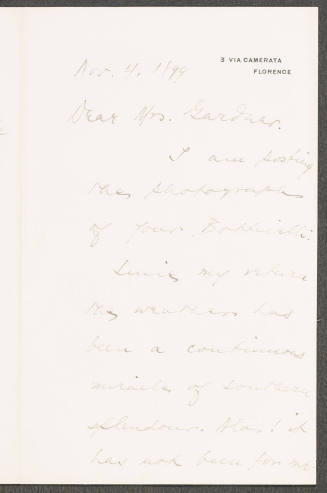 3 VIA CAMERATA
FLORENCE
Nov. 4, 1899
Dear Mrs. Gardner.
I am posting
the photograph
of your Botticelli.
Since my return
the weather has
been a continuous
miracle of southern
splendour. Alas! it
has not been for me